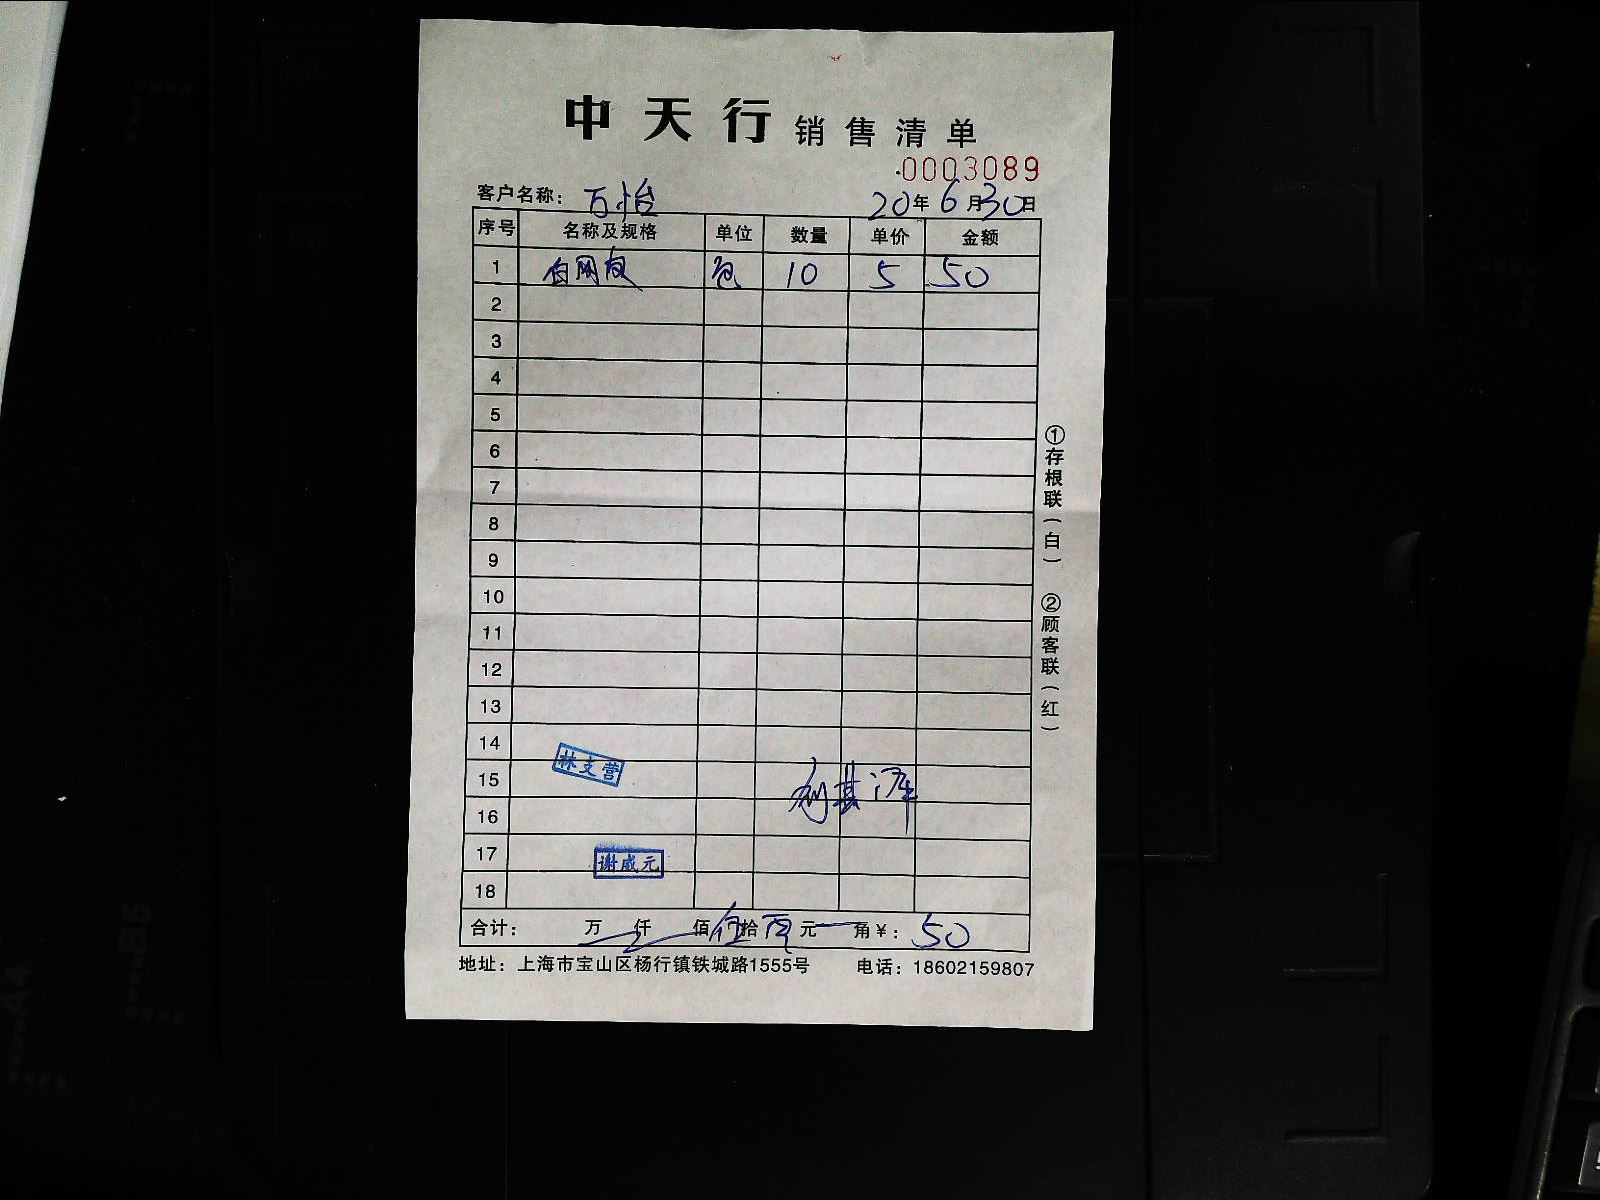 中天行 销售清单
0003089
客户名称：万怡 20年6月30日
序号 名称及规格 单位 数量 单价 金额
1 白网 包 10 5 50
2
3
4
5
6
7
8
9
10
11
12
13
14
15
16
17
18
林支营
谢威元
合计： 万 仟 佰 伍拾 元 角 ¥：50
地址：上海市宝山区杨行镇铁城路1555号 电话：18602159807
①存根联（白）
②顾客联（红）